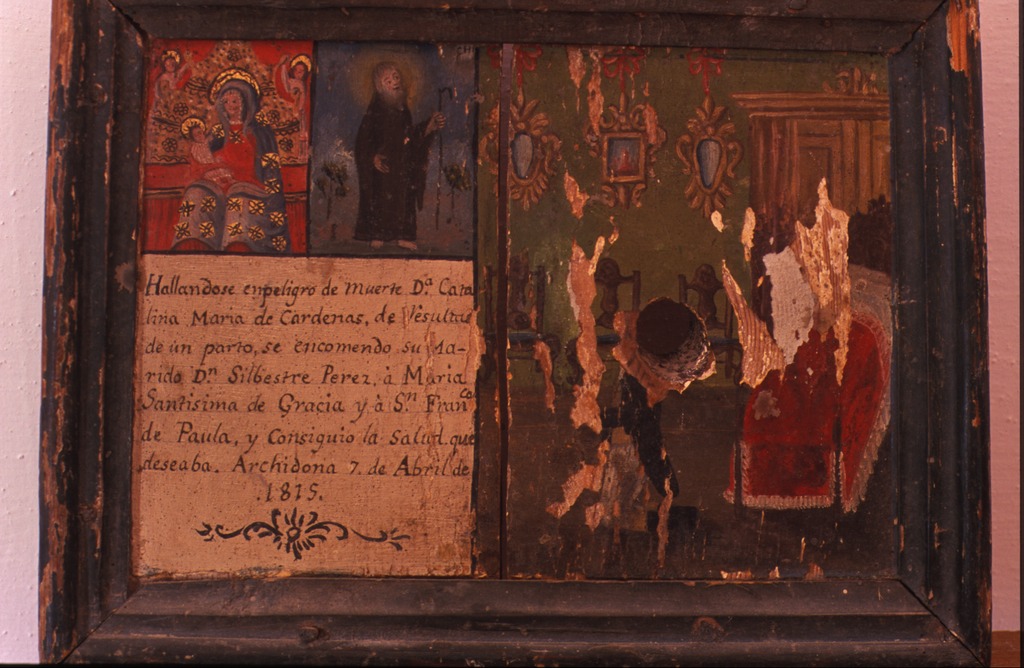 Hallandose enpeligro de muerte D.ª Cata
lina Maria de Cardenas, de resultas
de un parto, se encomendo su Ma-
rido D.ⁿ Silbestre Perez, à Maria
Santisima de Gracia y à S.ⁿ Fran.ᶜᵒ
de Paula, y Consiguio la Salud que
deseaba. Archidona 7. de Abril de
.1815.